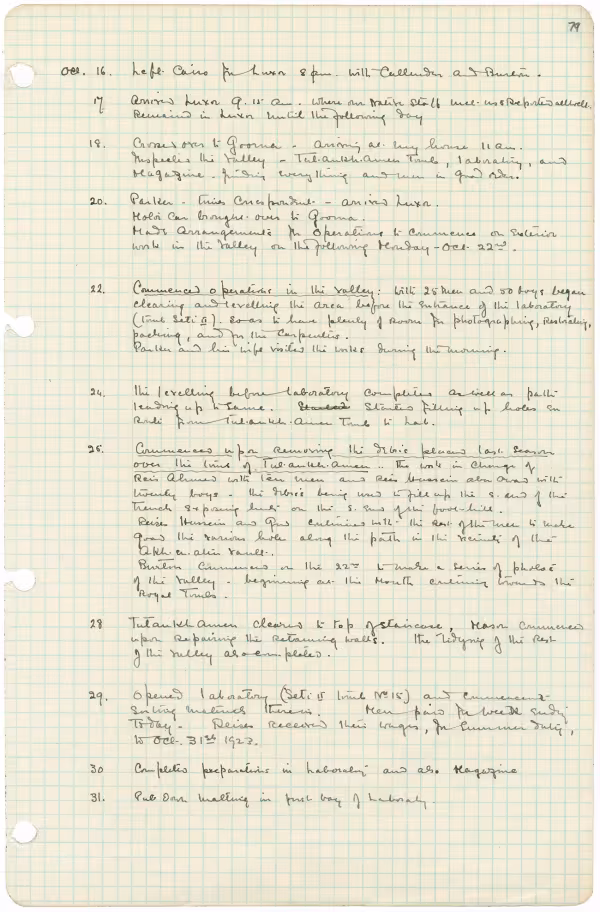 79
Oct. 16. Left Cairo for Luxor 8 pm. with Callender and Burton.
17 Arrived Luxor 9.15 a.m. where our Native Staff met us & Reported all well.
Remained in Luxor until the following day
18. Crossed over to Goorna - arriving at my house 11 am.
Inspected the Valley - Tut.ankh.Amen Tomb, laboratory, and
Magazine - finding everything and men in good order.
20. Parker - Times Correspondent - arrived Luxor.
Motor Car brought over to Goorna.
Made Arrangements for operations to Commence on Exterior
work in the Valley on the following Monday - Oct. 22nd.
22. Commenced operations in the Valley: With 25 men and 50 boys began
clearing and levelling the area before the Entrance of the laboratory
(Tomb Seti II). So as to have plenty of room for photographing, Restoring,
packing, and for the Carpenters.
Parker and his wife visited the works during the morning.
24. The levelling before laboratory completed as well as path
leading up to same. Started filling up holes on
Road from Tut.ankh.Amen Tomb to Lab.
25. Commenced upon removing the debris placed last Season
over the tomb of Tut.ankh.Amen. The work in charge of
Reis Ahmed with ten men and Reis Hussein abu Owad with
twenty boys - the debris being used to fill up the S. end of the
trench exposing huts on the S. End of the foot-hill.
Reises Hussein and Gad continued with the rest of the men to make
good the various holes along the path in the vicinity of the
Akh.en.aten Vault.
Burton Commenced on the 22nd to make a series of photos
of the Valley - beginning at the Mouth continuing towards the
Royal Tombs.
28 Tutankh.Amen cleared to top of staircase, Mason Commenced
upon Repairing the Retaining walls. The tidying of the Rest
of the Valley also completed.
29. Opened laboratory (Seti II Tomb No 15) and commenced
Sorting materials therein. Men paid for week ending
Today - Reises Received their wages, for Summer duty,
to Oct. 31st 1923.
30 Completed preparations in Laboratory and also Magazine
31. Put down matting in first bay of Laboratory.